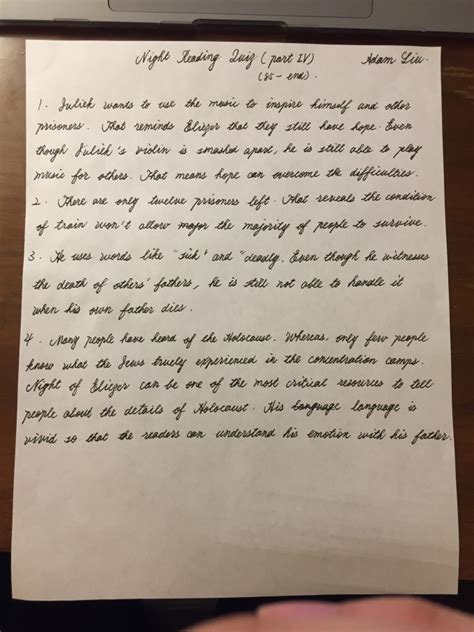 Night Reading Quiz (part IV) Adam Liu.
(85 - end).
1. Juliek wants to use the music to inspire himself and other
prisoners. That reminds Eliezer that they still have hope. Even
though Juliek's violin is smashed apart, he is still able to play
music for others. That means hope can overcome the difficulties.
2. There are only twelve prisoners left. That reveals the condition
of train won't allow major the majority of people to survive.
3. He uses words like "sick" and "deadly. Even though he witnesses
the death of others' fathers, he is still not able to handle it
when his own father dies.
4. Many people have heard of the Holocaust. Whereas, only few people
know what the Jews truely experienced in the concentration camps.
Night of Eliezer can be one of the most critical resources to tell
people about the details of Holocaust. His language language is
vivid so that the readers can understand his emotion with his father.